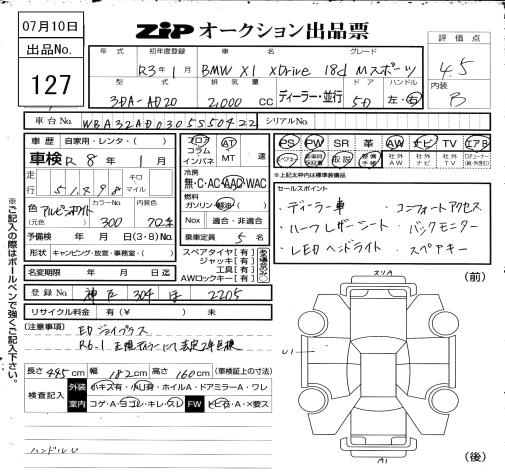 07月10日
ZIP オークション出品票
出品No.
127
評価点
4.5
内装
B
年式 初年度登録 車名 グレード
R3年1月 BMW X1 xDrive 18d Mスポーツ
型式 排気量 ドア ハンドル
3DA-AD20 2,000 cc ディーラー・並行 5D 左・右
車台No. WBA32AD0305S50422 シリアルNo.
車歴 自家用・レンタ・( )
車検 R 8年 1月
走行 51,898 キロ マイル
色(元色) アルピンホワイト カラーNo. 300 内装色
予備検 年 月 日(3・8)No.
形状 キャンピング・放宣・事務室・( )
名変期限 年 月 日迄
フロア コラム インパネ AT MT 速
冷房 無・C・AC・AAC・WAC
燃料 ガソリン・軽油( )
Nox 適合・非適合
乗車定員 5名
スペアタイヤ[有]
ジャッキ[有]
工具[有]
AWロックキー[有]
PS PW SR 革 AW ナビ TV エアB
スペアキー 取説 整備手帳 社外AW 社外ナビ 社外TV
※上記太枠内は標準装備品
セールスポイント
・ディーラー車 ・コンフォートアクセス
・ハーフレザーシート ・バックモニター
・LEDヘッドライト ・スペアキー
登録No. 神戸 304 ほ 2205
リサイクル料金 有(¥ )・ 無
(注意事項) EDジョイプラス
R6.1 正規ディーラーにて法定2年点検
長さ 445cm 幅 182cm 高さ 160cm (車検証上の寸法)
検査記入 外装 小キズ有・小凹有・ホイルA・ドアミラーA・ワレ
室内 コゲ・A・ヨゴレ・キレ・スレ FW トビ石・A・×要ス
ハンドルU
※ご記入の際はボールペンで強くご記入下さい。
(前)
スリA
U1
A1
(後)